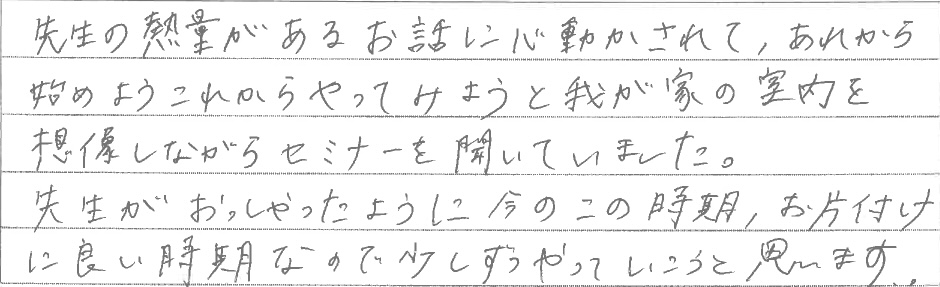 先生の熱量があるお話に心動かされて,あれから
始めようこれからやってみようと我が家の室内を
想像しながらセミナーを聞いていました。
先生がおっしゃったように今のこの時期,お片付け
に良い時期なので少しずつやっていこうと思います.